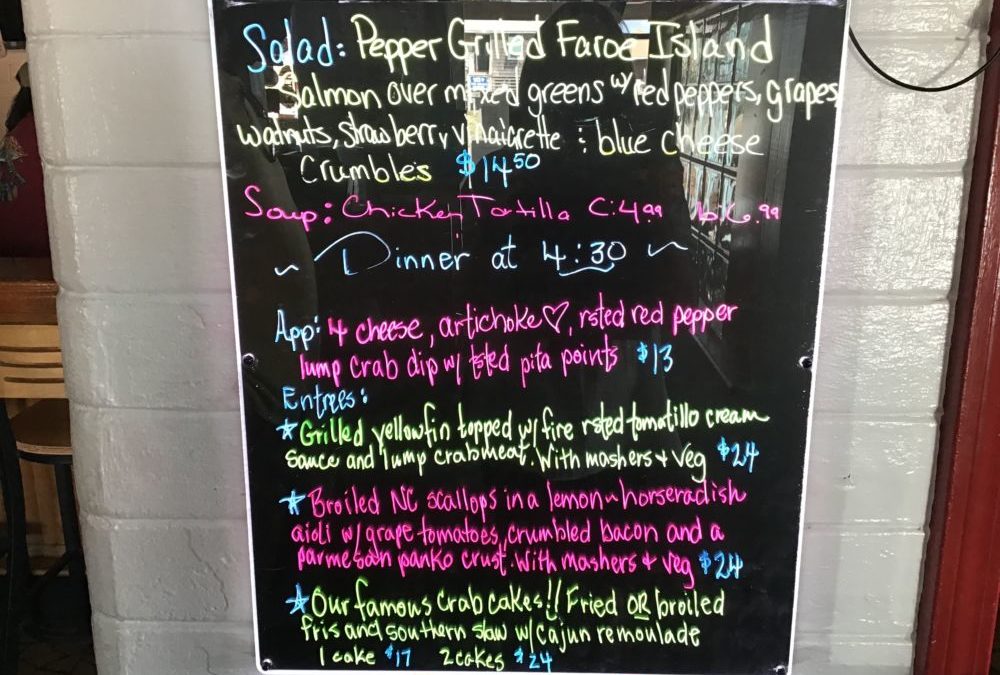 Salad: Pepper Grilled Faroe Island
Salmon over mixed greens w/ red peppers, grapes
walnuts, strawberry vinaigrette : blue cheese
Crumbles $14.50
Soup: Chicken Tortilla C:4.99 b:6.99
~ Dinner at 4:30 ~
App: 4 cheese, artichoke ♡, rsted red pepper
lump crab dip w/ tsted pita points $13
Entrees:
☆ Grilled yellowfin topped w/ fire rsted tomatillo cream
sauce and lump crabmeat. With mashers + veg $24
☆ Broiled NC scallops in a lemon-horseradish
aioli w/ grape tomatoes, crumbled bacon and a
parmesan panko crust. With mashers + veg $24
☆ Our famous Crab cakes!! Fried OR broiled
fris and southern slaw w/ Cajun remoulade
1 cake $17 2 cakes $24